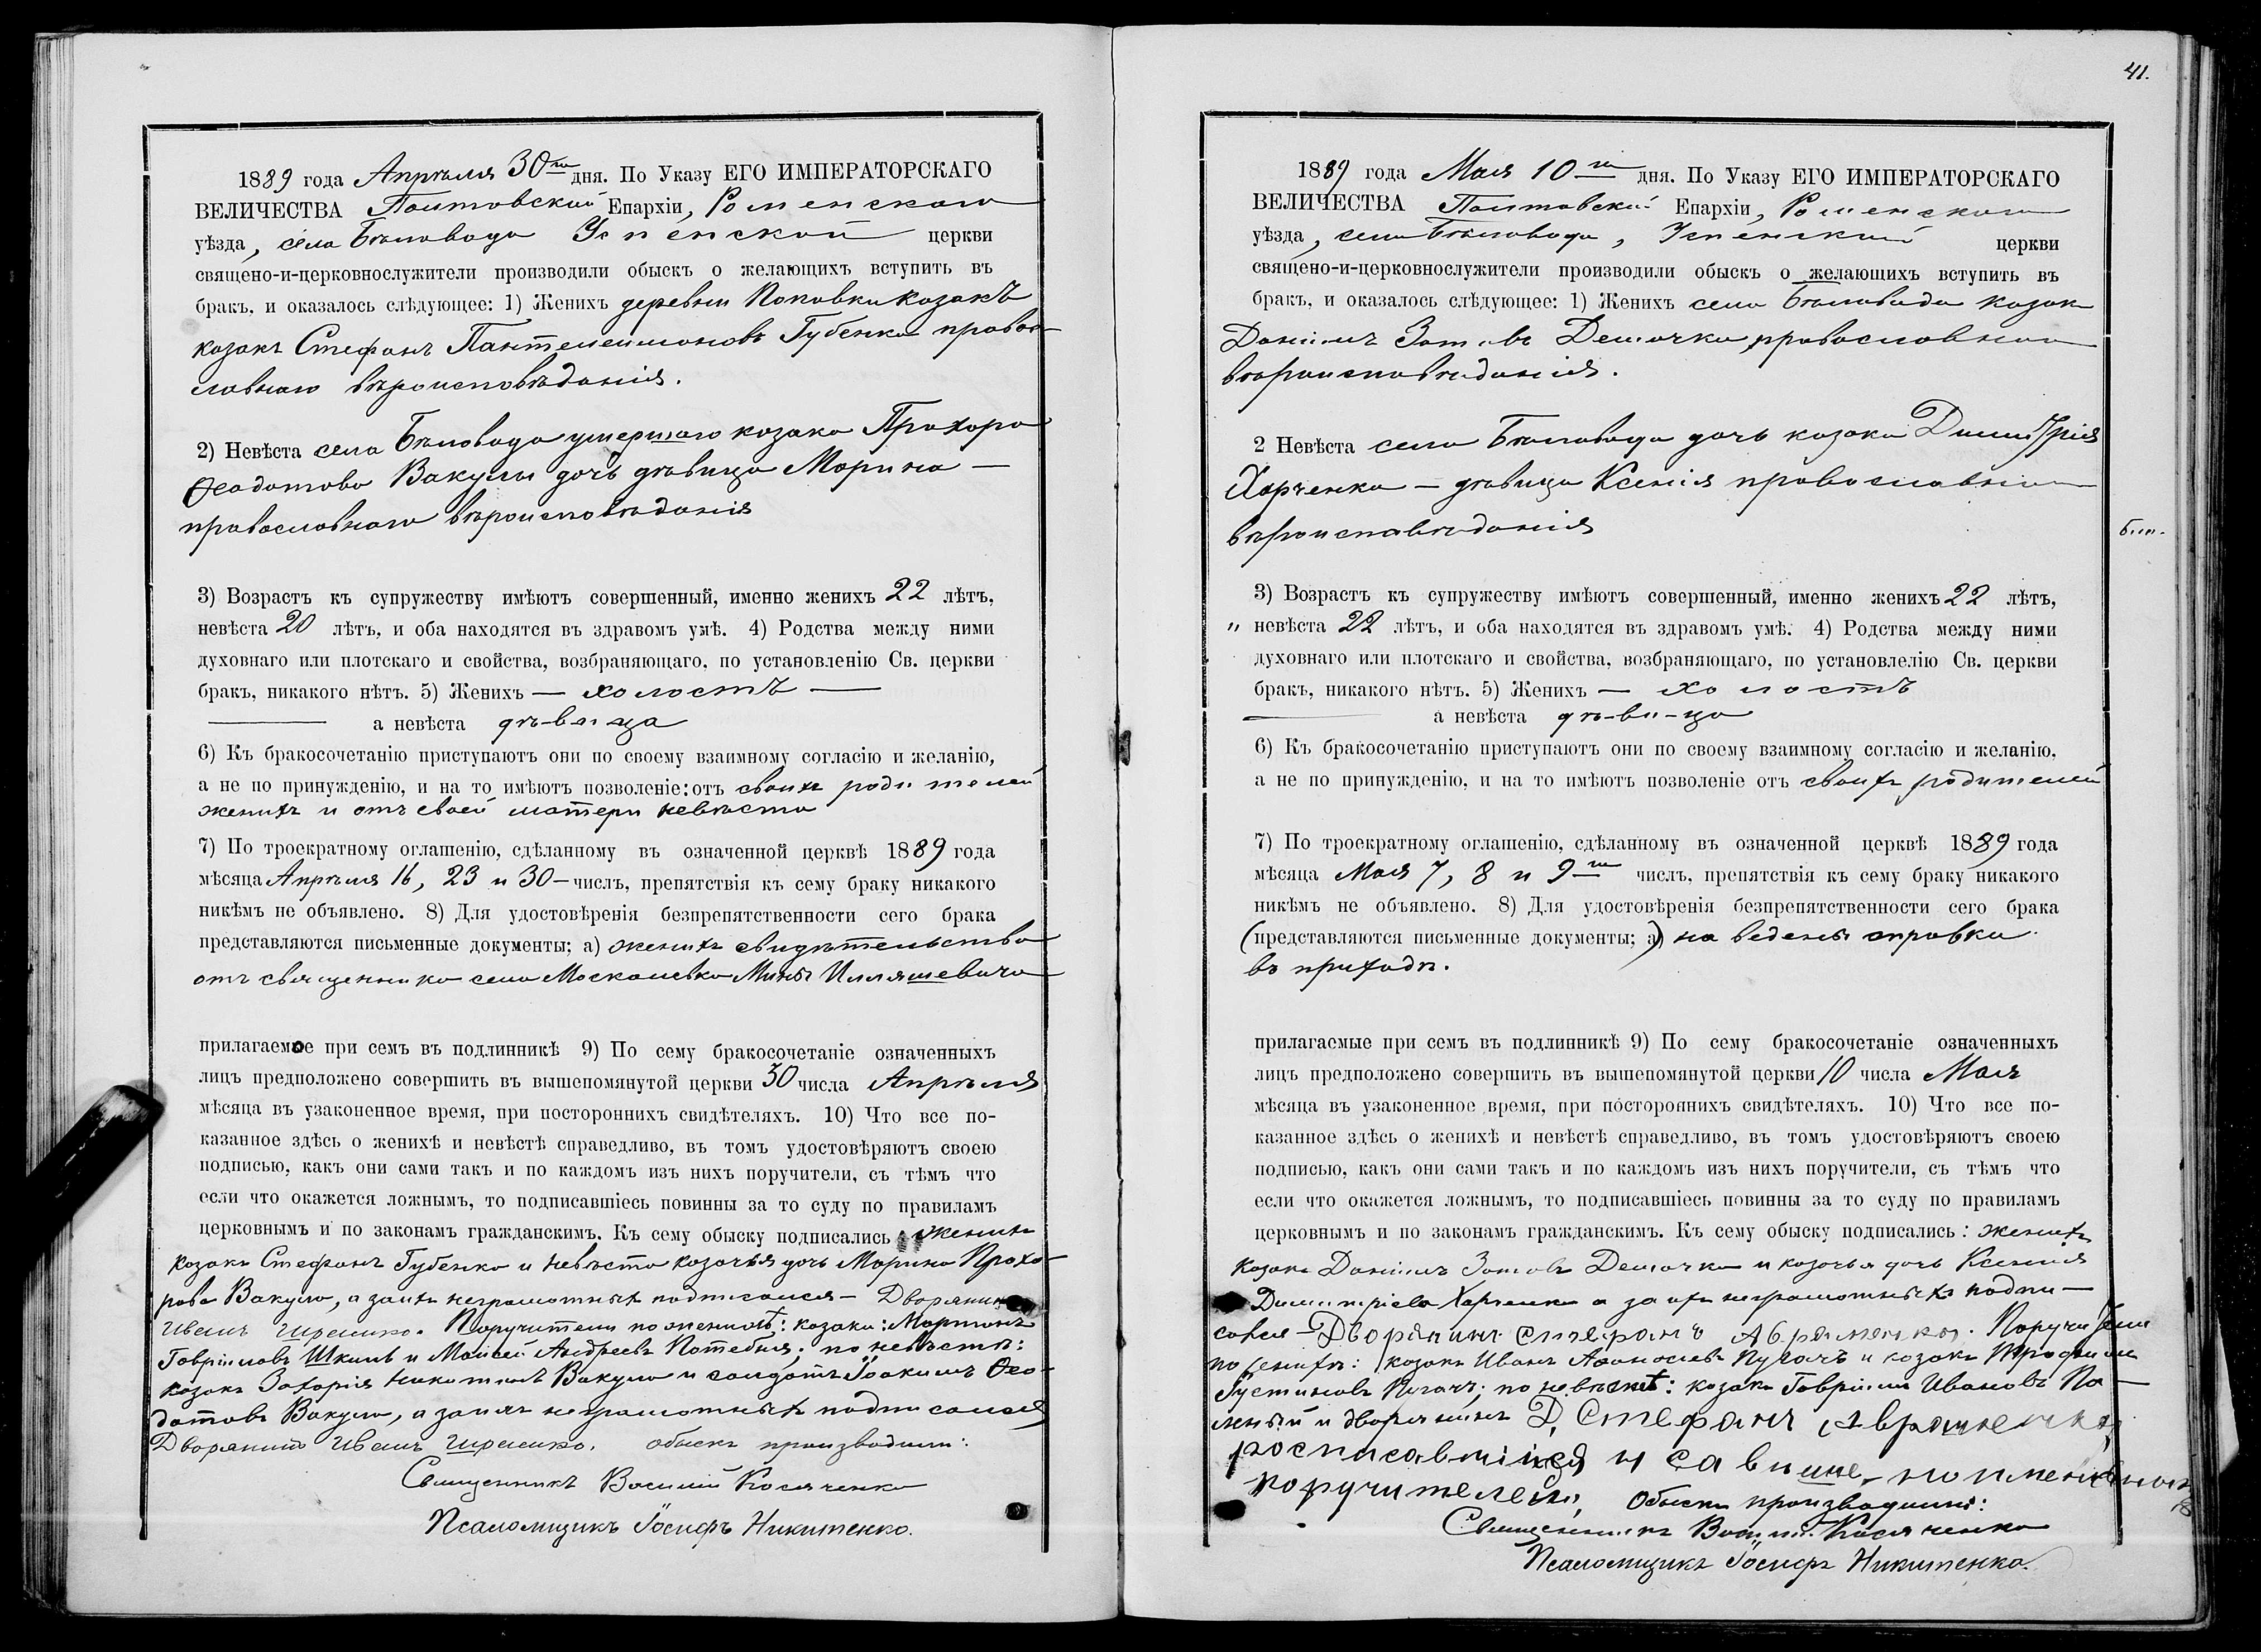 1889 года Апрѣля 30го дня. По Указу ЕГО ИМПЕРАТОРСКАГО
ВЕЛИЧЕСТВА Полтовской Епархіи, Роменскаго
уѣзда, села Бѣловода Успенской церкви
священо-и-церковнослужители производили обыскъ о желающихъ вступить въ
бракъ, и оказалось слѣдующее: 1) Женихъ деревни Поповки козакъ
козакъ Стефанъ Пантелеимоновъ Губенко право-
славнаго вѣроисповѣданія.
2) Невѣста села Бѣловода умершаго козака Прохора
Ѳеодотова Вакулы дочь дѣвица Марина —
православнаго вѣроисповѣданія
3) Возрастъ къ супружеству имѣютъ совершенный, именно женихъ 22 лѣтъ,
невѣста 20 лѣтъ, и оба находятся въ здравомъ умѣ. 4) Родства между ними
духовнаго или плотскаго и свойства, возбраняющаго, по установленію Св. церкви
бракъ, никакого нѣтъ. 5) Женихъ — холостъ —
а невѣста дѣ-вица
6) Къ бракосочетанію приступаютъ они по своему взаимному согласію и желанію,
а не по принужденію, и на то имѣютъ позволеніе: отъ своихъ родителей
женихъ и отъ своей матери невѣста
7) По троекратному оглашенію, сдѣланному въ означенной церквѣ 1889 года
мѣсяца Апрѣля 16, 23 и 30 — числъ, препятствія къ сему браку никакого
никѣмъ не объявлено. 8) Для удостовѣренія безпрепятственности сего брака
представляются письменные документы; а) женихъ свидѣтельство
отъ священника села Москалевки Мины Илляшевича
прилагаемое при семъ въ подлинникѣ 9) По сему бракосочетаніе означенныхъ
лицъ предположено совершить въ вышепомянутой церкви 30 числа Апрѣля
мѣсяца въ узаконенное время, при постороннихъ свидѣтеляхъ. 10) Что все по-
казанное здѣсь о женихѣ и невѣстѣ справедливо, въ томъ удостовѣряютъ своею
подписью, какъ они сами такъ и по каждомъ изъ нихъ поручители, съ тѣмъ что
если что окажется ложнымъ, то подписавшіесь повинны за то суду по правиламъ
церковнымъ и по законамъ гражданскимъ. Къ сему обыску подписались женихъ
козакъ Стефанъ Губенко и невѣста козачья дочь Марина Прохо-
рова Вакула, а за нихъ неграмотныхъ подписался — Дворянинъ
Иванъ. Поручители по женихѣ: козаки: Мартинъ
Гавріиловъ Шкиль и Моисей Андреевъ Потебня; по невѣстѣ:
козакъ Захарія Никитинъ Вакула и солдатъ Іоакимъ Ѳео-
дотовъ Вакула, а за нихъ неграмотныхъ подписался
Дворянинъ Иванъ. обыскъ производили:
Священникъ Василій Косяченко
Псаломщикъ Іосифъ Никитенко.
41.
1889 года Мая 10го дня. По Указу ЕГО ИМПЕРАТОРСКАГО
ВЕЛИЧЕСТВА Полтавской Епархіи, Роменскаго
уѣзда, села Бѣловода, Успенской церкви
священо-и-церковнослужители производили обыскъ о желающихъ вступить въ
бракъ, и оказалось слѣдующее: 1) Женихъ села Бѣловода козакъ
Даніилъ Зотовъ Демочка, православнаго
вѣроисповѣданія.
2 Невѣста села Бѣловода дочь козака Димитрія
Харченка — дѣвица Ксенія православнаго
вѣроисповѣданія
3) Возрастъ къ супружеству имѣютъ совершенный, именно женихъ 22 лѣтъ,
" невѣста 22 лѣтъ, и оба находятся въ здравомъ умѣ. 4) Родства между ними
духовнаго или плотскаго и свойства, возбраняющаго, по установлелію Св. церкви
бракъ, никакого нѣтъ. 5) Женихъ — холостъ
а невѣста дѣ-ви-ца
6) Къ бракосочетанію приступаютъ они по своему взаимному согласію и желанію,
а не по принужденію, и на то имѣютъ позволеніе отъ своихъ родителей
7) По троекратному оглашенію, сдѣланному въ означенной церквѣ 1889 года
мѣсяца Мая 7, 8 и 9го числъ, препятствія къ сему браку никакого
никѣмъ не объявлено. 8) Для удостовѣренія безпрепятственности сего брака
(представляются письменные документы; а) на ведены справки
въ приходѣ.
прилагаемые при семъ въ подлинникѣ 9) По сему бракосочетаніе означенныхъ
лицъ предположено совершить въ вышепомянутой церкви 10 числа Мая
мѣсяца въ узаконенное время, при постороннихъ свидѣтеляхъ. 10) Что все по-
казанное здѣсь о женихѣ и невѣстѣ справедливо, въ томъ удостовѣряютъ своею
подписью, какъ они сами такъ и по каждомъ изъ нихъ поручители, съ тѣмъ что
если что окажется ложнымъ, то подписавшіесь повинны за то суду по правиламъ
церковнымъ и по законамъ гражданскимъ. Къ сему обыску подписались: женихъ
козакъ Даніилъ Зотовъ Демочка и козачья дочь Ксенія
Димитріева Харченко а за ихъ неграмотныхъ подпи-
сался — Дворянинъ Стефанъ Авраменко. Поручители
по женихѣ: козакъ Иванъ Аѳанасіевъ Пугачъ и козакъ Трофимъ
Густиновъ Пугачъ; по невѣстѣ: козакъ Гавріилъ Ивановъ
и дворянинъ Д, Стефанъ Авраменко,
росписавшійся и за
поручителей, Обыскъ производили:
Священникъ Василій Косяченко
Псаломщикъ Іосифъ Никитенко.